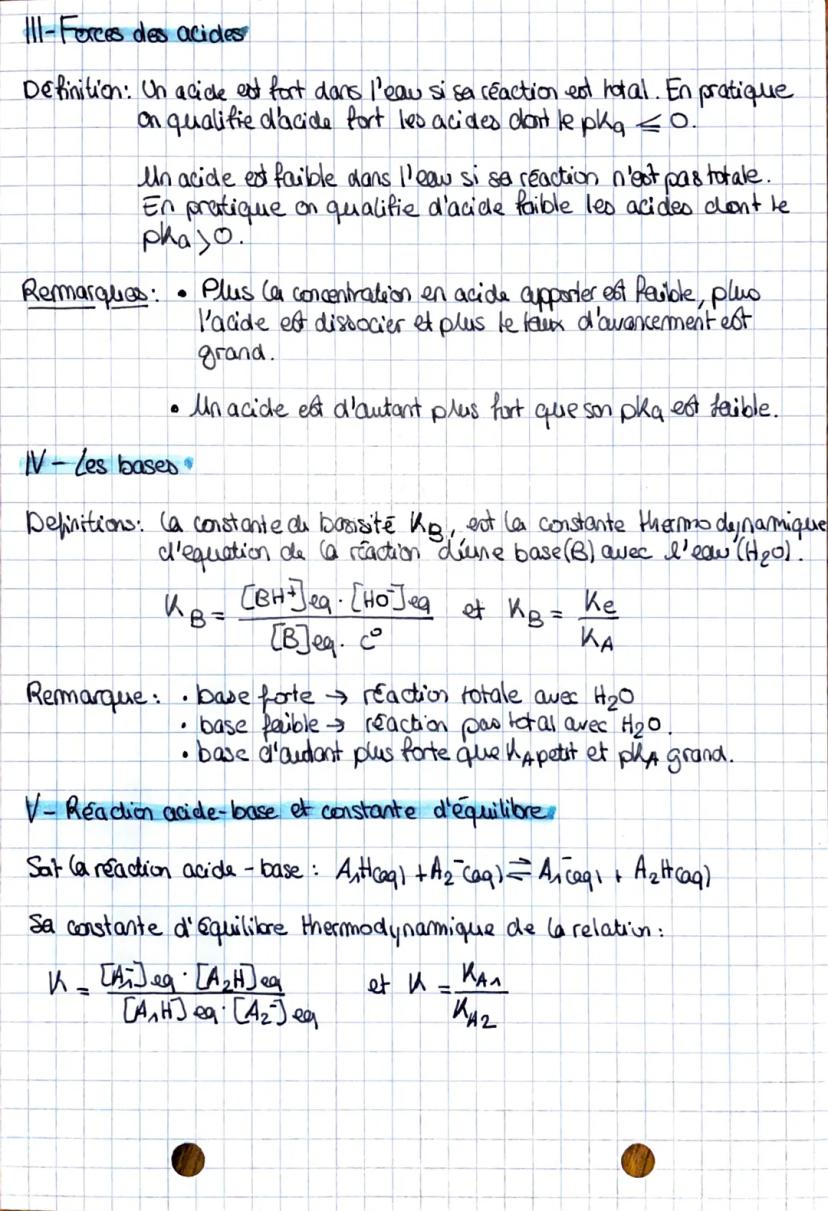 III - Forces des acides
Définition: Un acide est fort dans l'eau si sa réaction est total. En pratique
on qualifie d'acide fort les acides dont le pKa ⩽ 0.
Un acide est faible dans l'eau si sa réaction n'est pas totale.
En pratique on qualifie d'acide faible les acides dont le
pKa > 0.
Remarques: • Plus la concentration en acide apporter est faible, plus
l'acide est dissocier et plus le taux d'avancement est
grand.
• Un acide est d'autant plus fort que son pKa est faible.
IV - Les bases
Definitions: La constante du basisité KB, est la constante thermodynamique
d'equation de la réaction d'une base (B) avec l'eau (H2O).
KB = [BH+]eq · [HO-]eq / [B]eq · c° et KB = Ke / KA
Remarque: • base forte → réaction totale avec H2O
• base faible → réaction pas total avec H2O.
• base d'autant plus forte que KA petit et pKA grand.
V - Réaction acide-base et constante d'équilibre
Soit la réaction acide-base: A1H(aq) + A2-(aq) ⇌ A1-(aq) + A2H(aq)
Sa constante d'équilibre thermodynamique de la relation:
K = [A1-]eq · [A2H]eq / [A1H]eq · [A2-]eq et K = KA1 / KA2